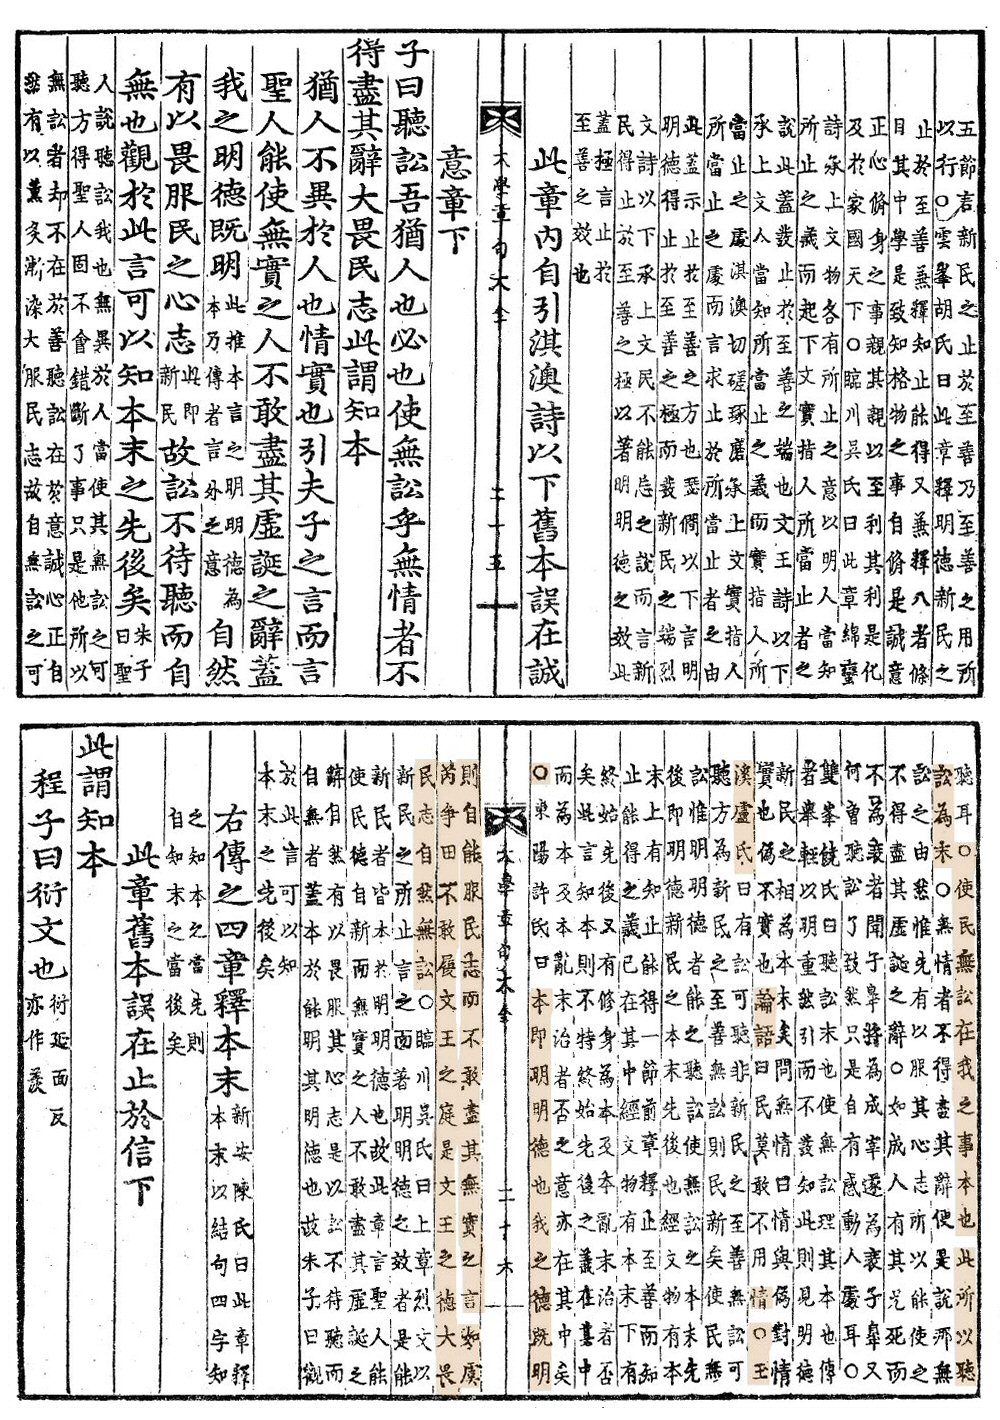 五節言新民之止於至善乃至善之用所
以行○雲峯胡氏曰此章釋明德新民之
止於至善兼釋知止能得又兼釋八者條
目其中學是致知格物之事自脩是誠意
正心脩身之事親其親以至利其利是化
及於家國天下○臨川吳氏曰此章綿蠻
詩承上文物各有所止之意以明人當知
所止之義而起下文實指人所當止者之
說此蓋發止於至善之端也文王詩以下
承上文人當知所當止之義而實指人所
當止之處淇澳切磋琢磨承上文實指人
所當止之處而言求止於所當止者之由
此蓋示止於至善之方也瑟僩以下言明
明德得止於至善之極而發新民之端烈
文詩以下承上文民不能忘之說而言新
民得止於至善之極以著明明德之效此
蓋極言止於
至善之效也
此章內自引淇澳詩以下舊本誤在誠
大學章句大全 二十五
意章下
子曰聽訟吾猶人也必也使無訟乎無情者不
得盡其辭大畏民志此謂知本
猶人不異於人也情實也引夫子之言而言
聖人能使無實之人不敢盡其虛誕之辭蓋
我之明德既明此推本言之明明德為本乃傳者言外之意自然
有以畏服民之心志此即新民故訟不待聽而自
無也觀於此言可以知本末之先後矣朱子曰聖
人說聽訟我也無異於人當使其無訟之可
聽方得聖人固不會錯斷了事只是他所以
無訟者却不在於善聽訟在於意誠心正自
然有以薰炙漸染大服民志故自無訟之可
聽耳○使民無訟在我之事本也此所以聽
訟為末○無情者不得盡其辭便是說那無
訟之由然惟先有以服其心志所以能使之
不得盡其虛誕之辭○如成人有其兄死而
不為衰者聞子皋將為成宰遂為衰子皋又
何曾聽訟了致然只是自有感動人處耳○
雙峯饒氏曰聽訟末也使無訟理其本也傳
者舉輕以明重然引而不發知此則見明德
新民之相為本末矣問無情曰情與偽對情
實也偽不實也論語曰民莫敢不用情○玉
溪盧氏曰有訟可聽非新民之至善無訟可
聽方為新民之至善無訟則民新矣使民無
訟惟明明德者能之聽訟使無訟之本末先
後即明德新民者之本末先後也經文物有本
末上有知止能得一節前章釋止至善而知
止能得之義已在其中經文物有本末下有
終始先後又有修身為本及本亂末治者否
矣此言知本則不特終始先後之義在其中
而為本及本亂末治者否之意亦在其中矣
○東陽許氏曰本即明明德也我之德既明
大學章句大全 二十六
則自能服民志而不敢盡其無實之言如虞
芮爭田不敢履文王之庭是文王之德大畏
民志自然無訟○臨川吳氏曰上章烈文以
新民之所止言之而著明明德之效者是能
新民者皆本於明明德也故此章言聖人能
使民德自新而無實之人不敢盡其虛誕之
辭自然有以畏服其心志是以訟不待聽而
自無者蓋本於能明其明德也故朱子曰觀
於此言可以知
本末之先後矣
右傳之四章釋本末新安陳氏曰此章釋本末以結句四字知
之知本之當先則
自知末之當後矣
此章舊本誤在止於信下
此謂知本
程子曰衍文也衍延面反亦作羨